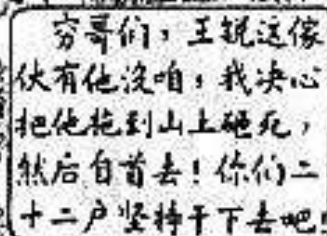 穷哥们，王锐这傢
伙有他没咱，我决心
把他拖到山上砸死，
然后自首去！你们二
十二户坚持干下去吧！